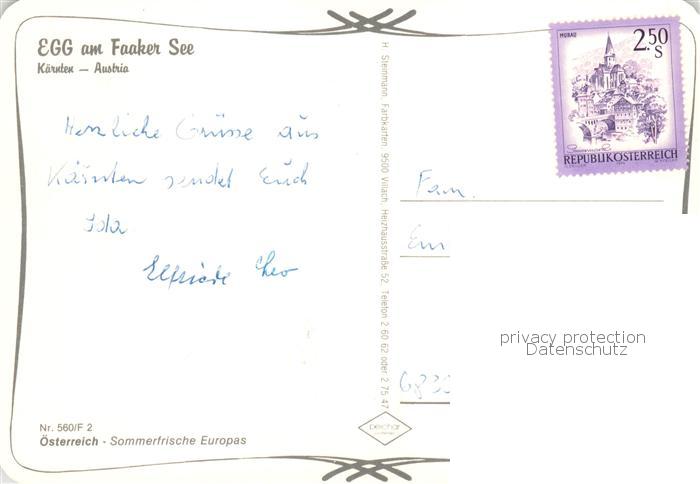 EGG am Faaker See
Kärnten — Austria
Herzliche Grüsse aus
Kärnten sendet Euch
Ida
Elfriede Leo
Nr. 560/F 2
Österreich - Sommerfrische Europas
H. Steinmann, Farbkarten, 9500 Villach, Heizhausstraße 52, Telefon 2 60 62 oder 2 75 47
MURAU
2.50
S
REPUBLIK ÖSTERREICH
Fam.
privacy protection
Datenschutz